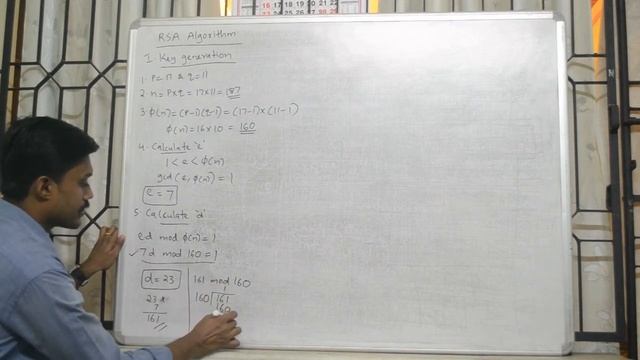 16 17 18 19 20 21 22
23 24 25 26 27 28 29
RSA Algorithm
I. Key generation
1. P = 17 & q = 11
2. n = P x q = 17 x 11 = 187
3. ϕ(n) = (P-1)(q-1) = (17-1) x (11-1)
ϕ(n) = 16 x 10 = 160
4. Calculate 'e'
1 < e < ϕ(n)
gcd(e, ϕ(n)) = 1
e = 7
5. Calculate 'd'
e d mod ϕ(n) = 1
✓ 7 d mod 160 = 1
d = 23
23 x
7
161
161 mod 160
1
160 161
160